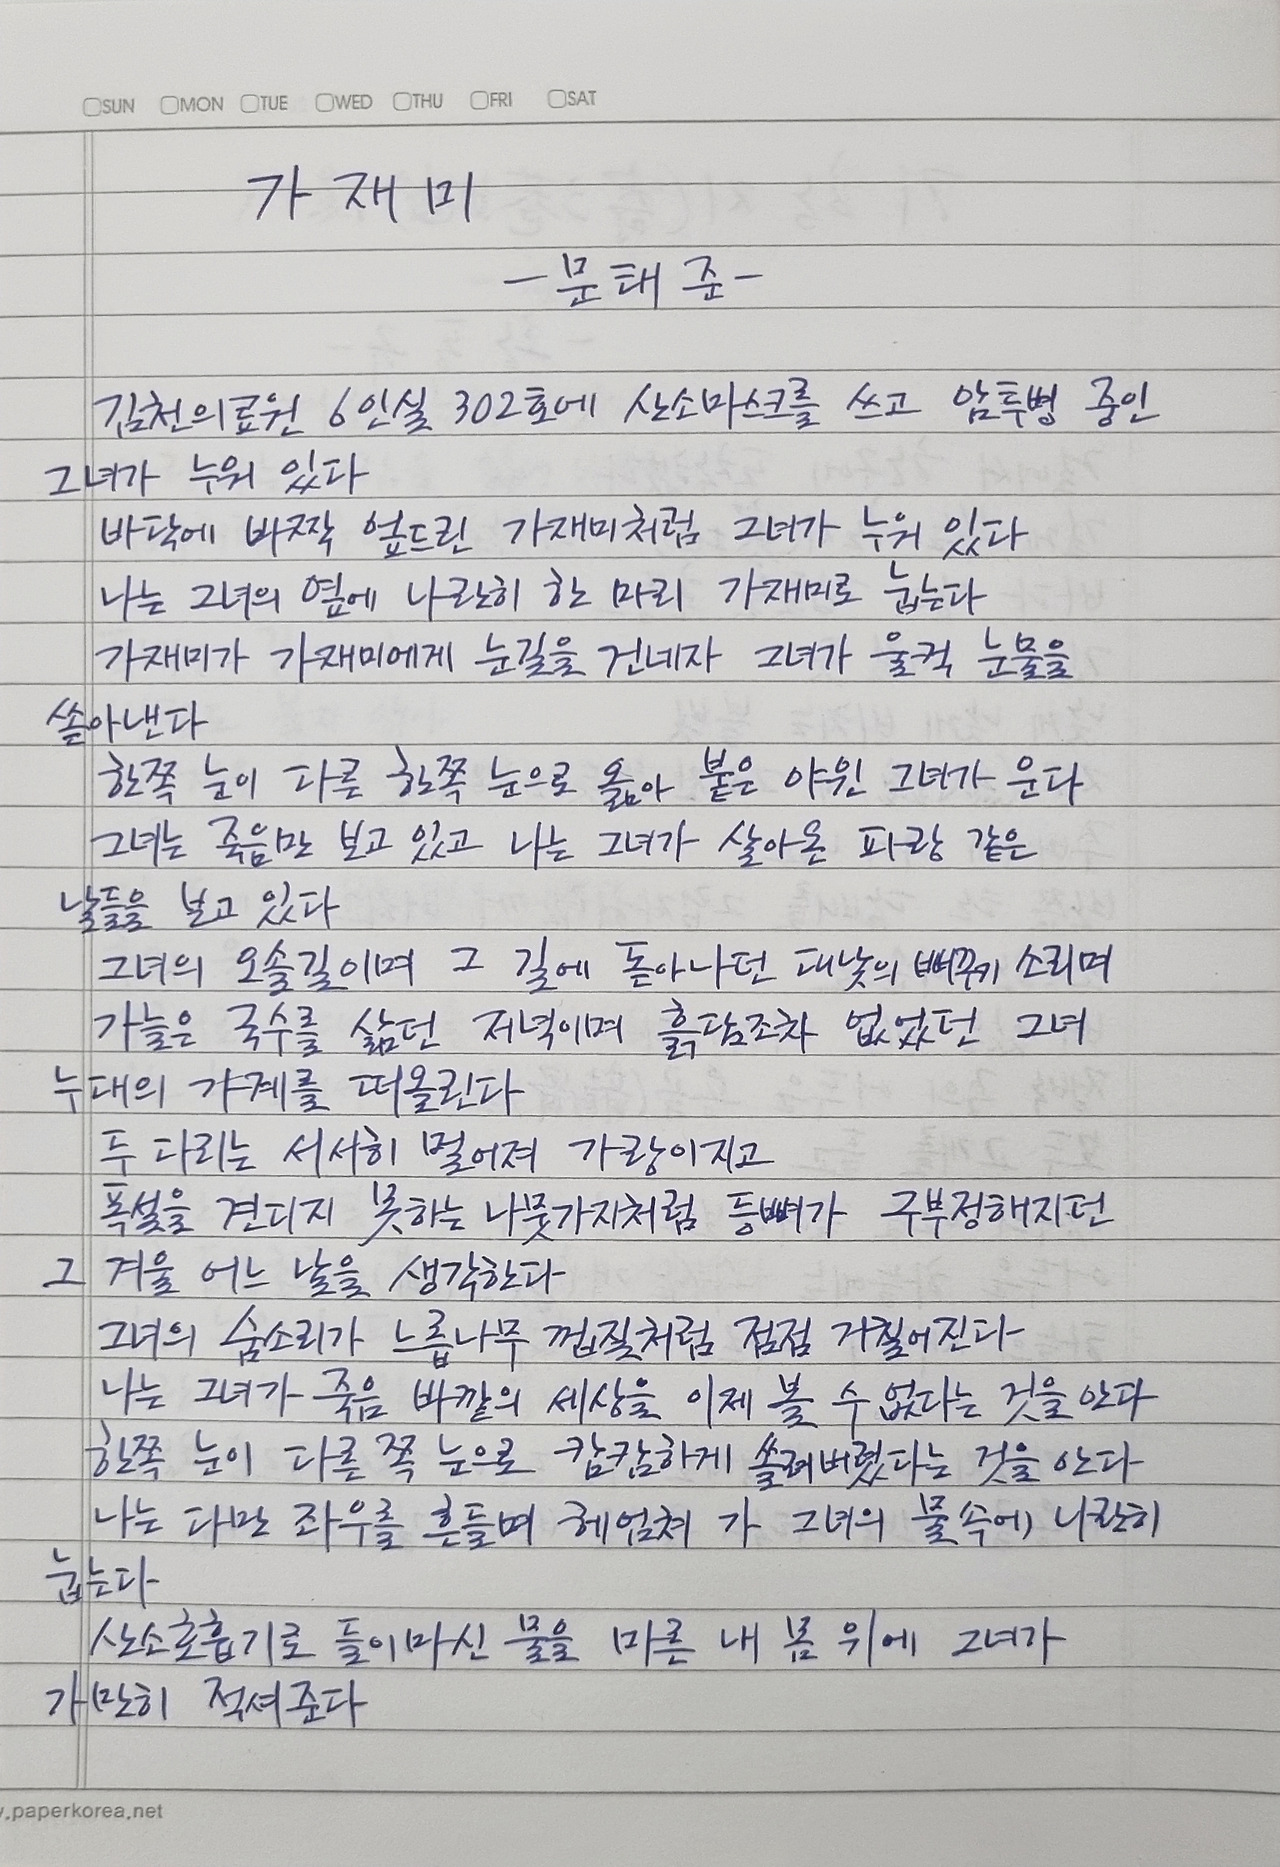 SUN MON TUE WED THU FRI SAT
가재미
-문태준-
김천의료원 6인실 302호에 산소마스크를 쓰고 암투병 중인
그녀가 누워 있다
바닥에 바짝 엎드린 가재미처럼 그녀가 누워 있다
나는 그녀의 옆에 나란히 한 마리 가재미로 눕는다
가재미가 가재미에게 눈길을 건네자 그녀가 울컥 눈물을
쏟아낸다
한쪽 눈이 다른 한쪽 눈으로 옮아 붙은 야윈 그녀가 운다
그녀는 죽음만 보고 있고 나는 그녀가 살아온 파랑 같은
날들을 보고 있다
그녀의 오솔길이며 그 길에 돋아나던 대낮의 뻐꾸기 소리며
가늘은 국수를 삶던 저녁이며 흙담조차 없었던 그녀
누대의 가계를 떠올린다
두 다리는 서서히 멀어져 가랑이지고
폭설을 견디지 못하는 나뭇가지처럼 등뼈가 구부정해지던
그 겨울 어느 날을 생각한다
그녀의 숨소리가 느릅나무 껍질처럼 점점 거칠어진다
나는 그녀가 죽음 바깥의 세상을 이제 볼 수 없다는 것을 안다
한쪽 눈이 다른 쪽 눈으로 캄캄하게 쏠려버렸다는 것을 안다
나는 다만 좌우를 흔들며 헤엄쳐 가 그녀의 물속에 나란히
눕는다
산소호흡기로 들이마신 물을 마른 내 몸 위에 그녀가
가만히 적셔준다
.paperkorea.net